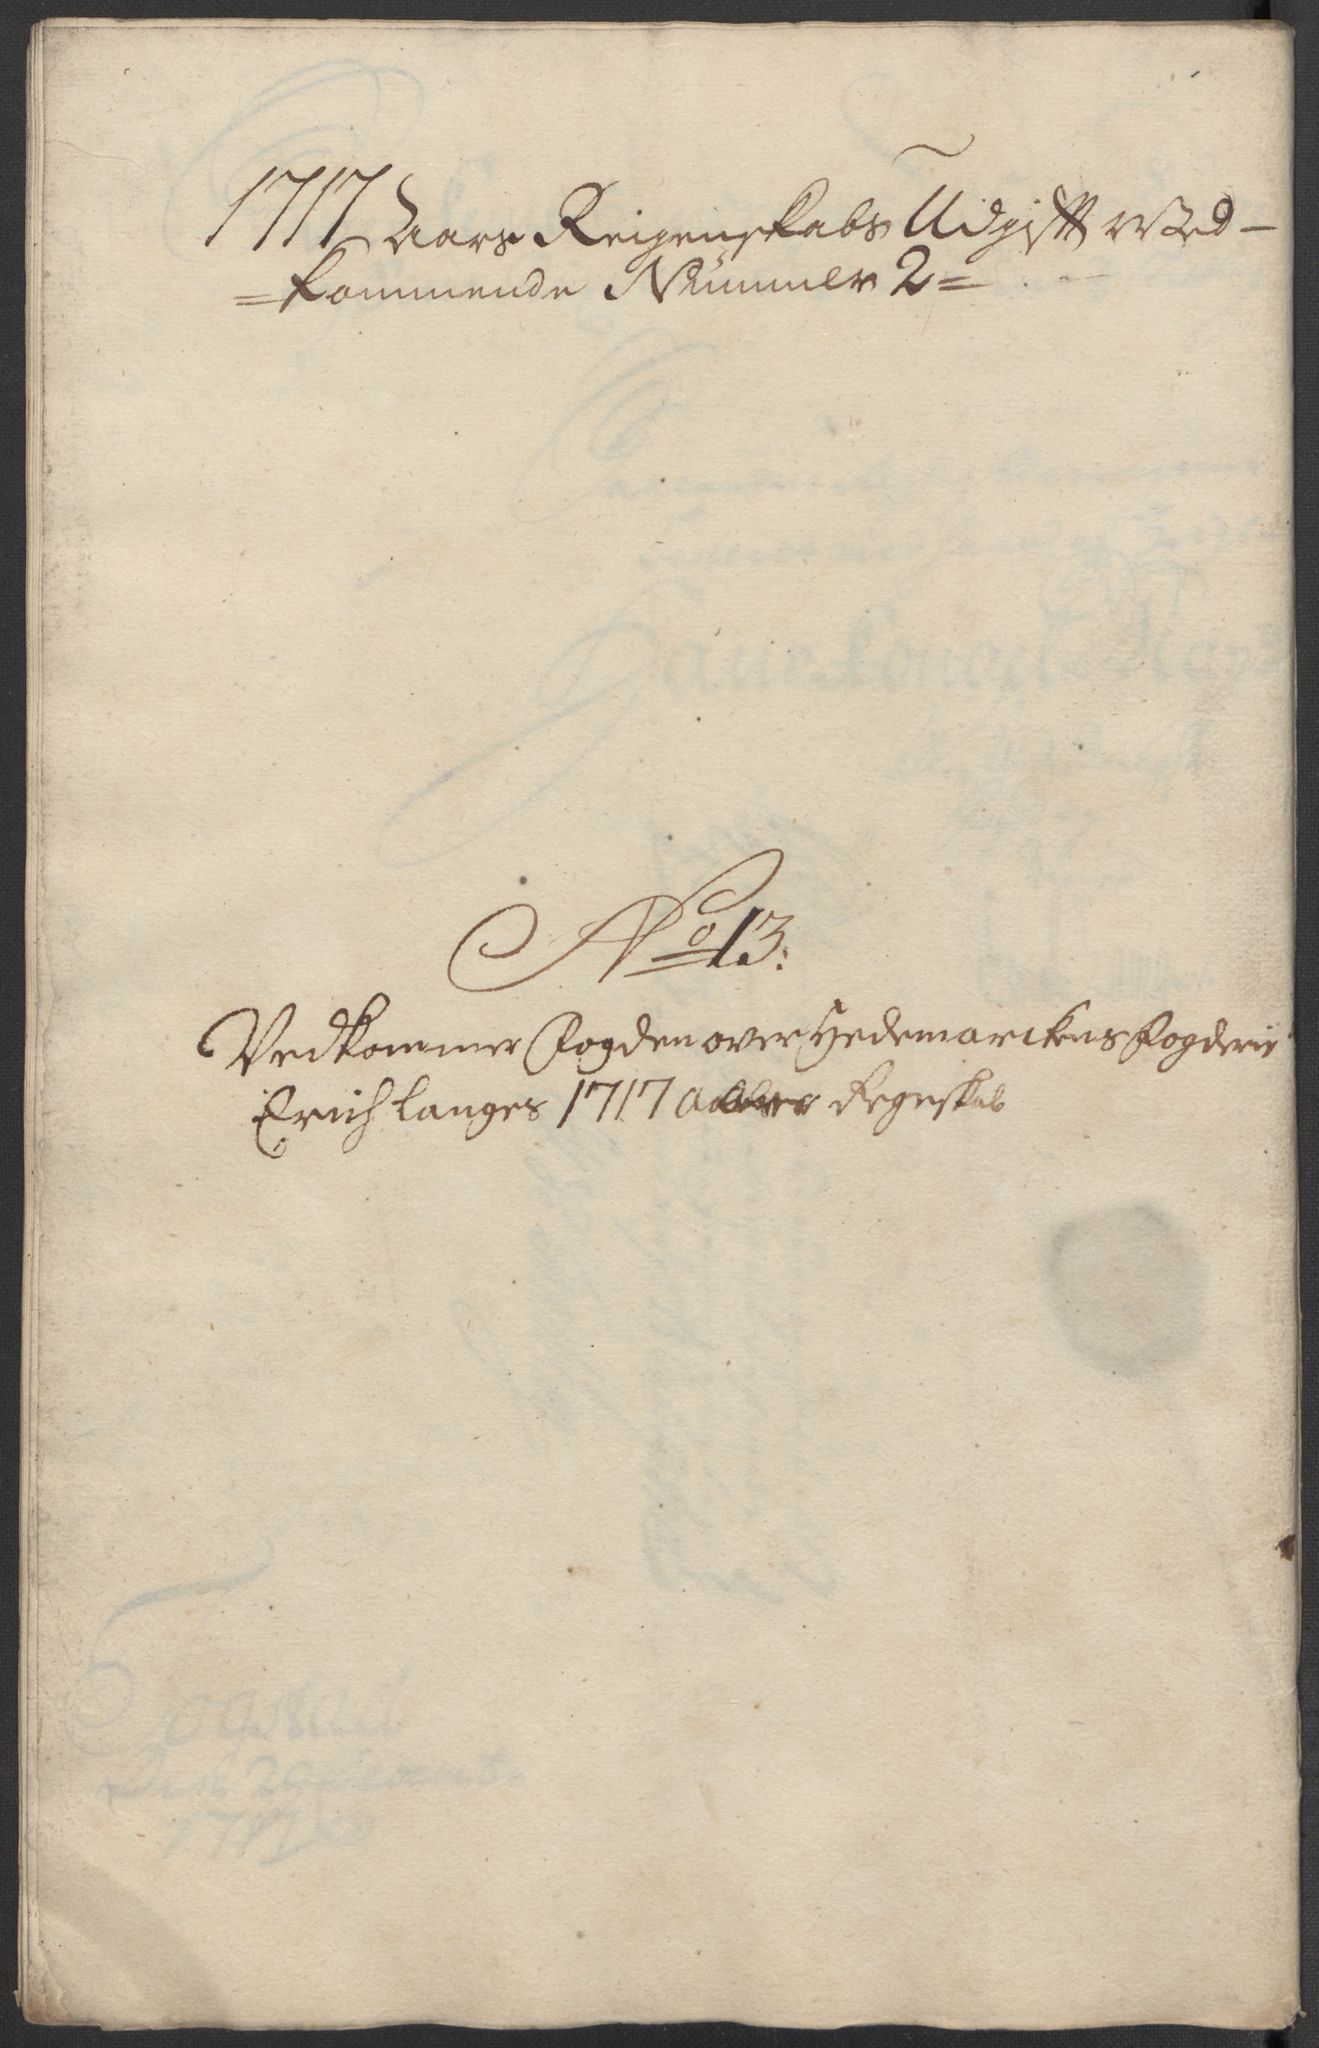 1717 Aars Reigenskabs Udgift Ved-
=kommende Nummer 2=
No 13:
Vedkommer Fogden over Hedemarckens Fogderie
Erich Langes 1717 Regnskab